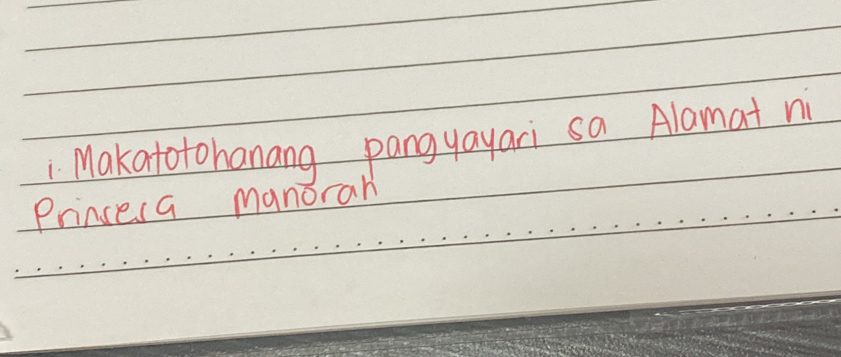 i. Makatotohanang pangyayari sa Alamat ni
Prinsesa Manorah